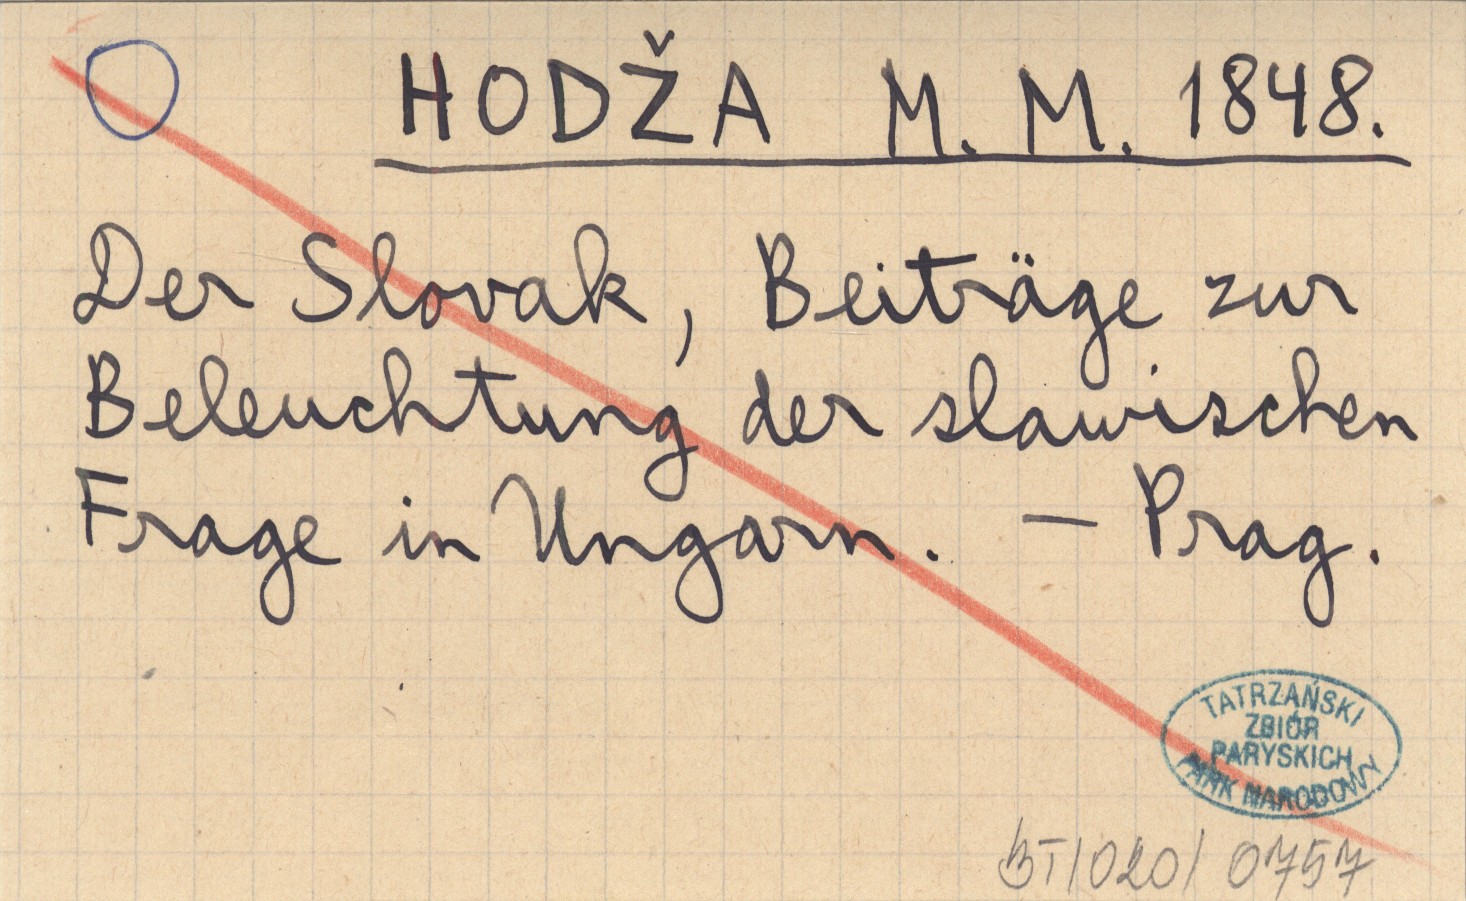 HODŽA M. M. 1848.
Der Slovak, Beiträge zur
Beleuchtung der slawischen
Frage in Ungarn. — Prag.
TATRZAŃSKI
ZBIÓR
PARYSKICH
PARK NARODOWY
BT/020/0757